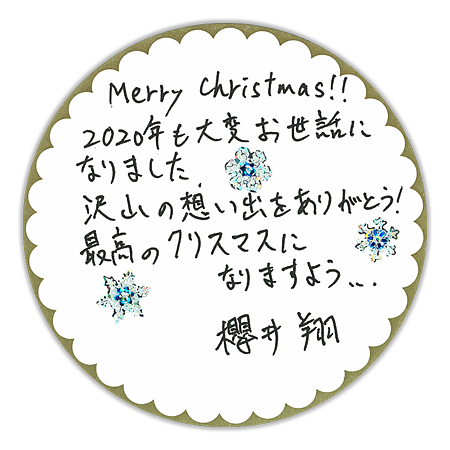 Merry Christmas!!
2020年も大変お世話に
なりました.
沢山の想い出をありがとう!
最高のクリスマスに
なりますよう...
櫻井翔